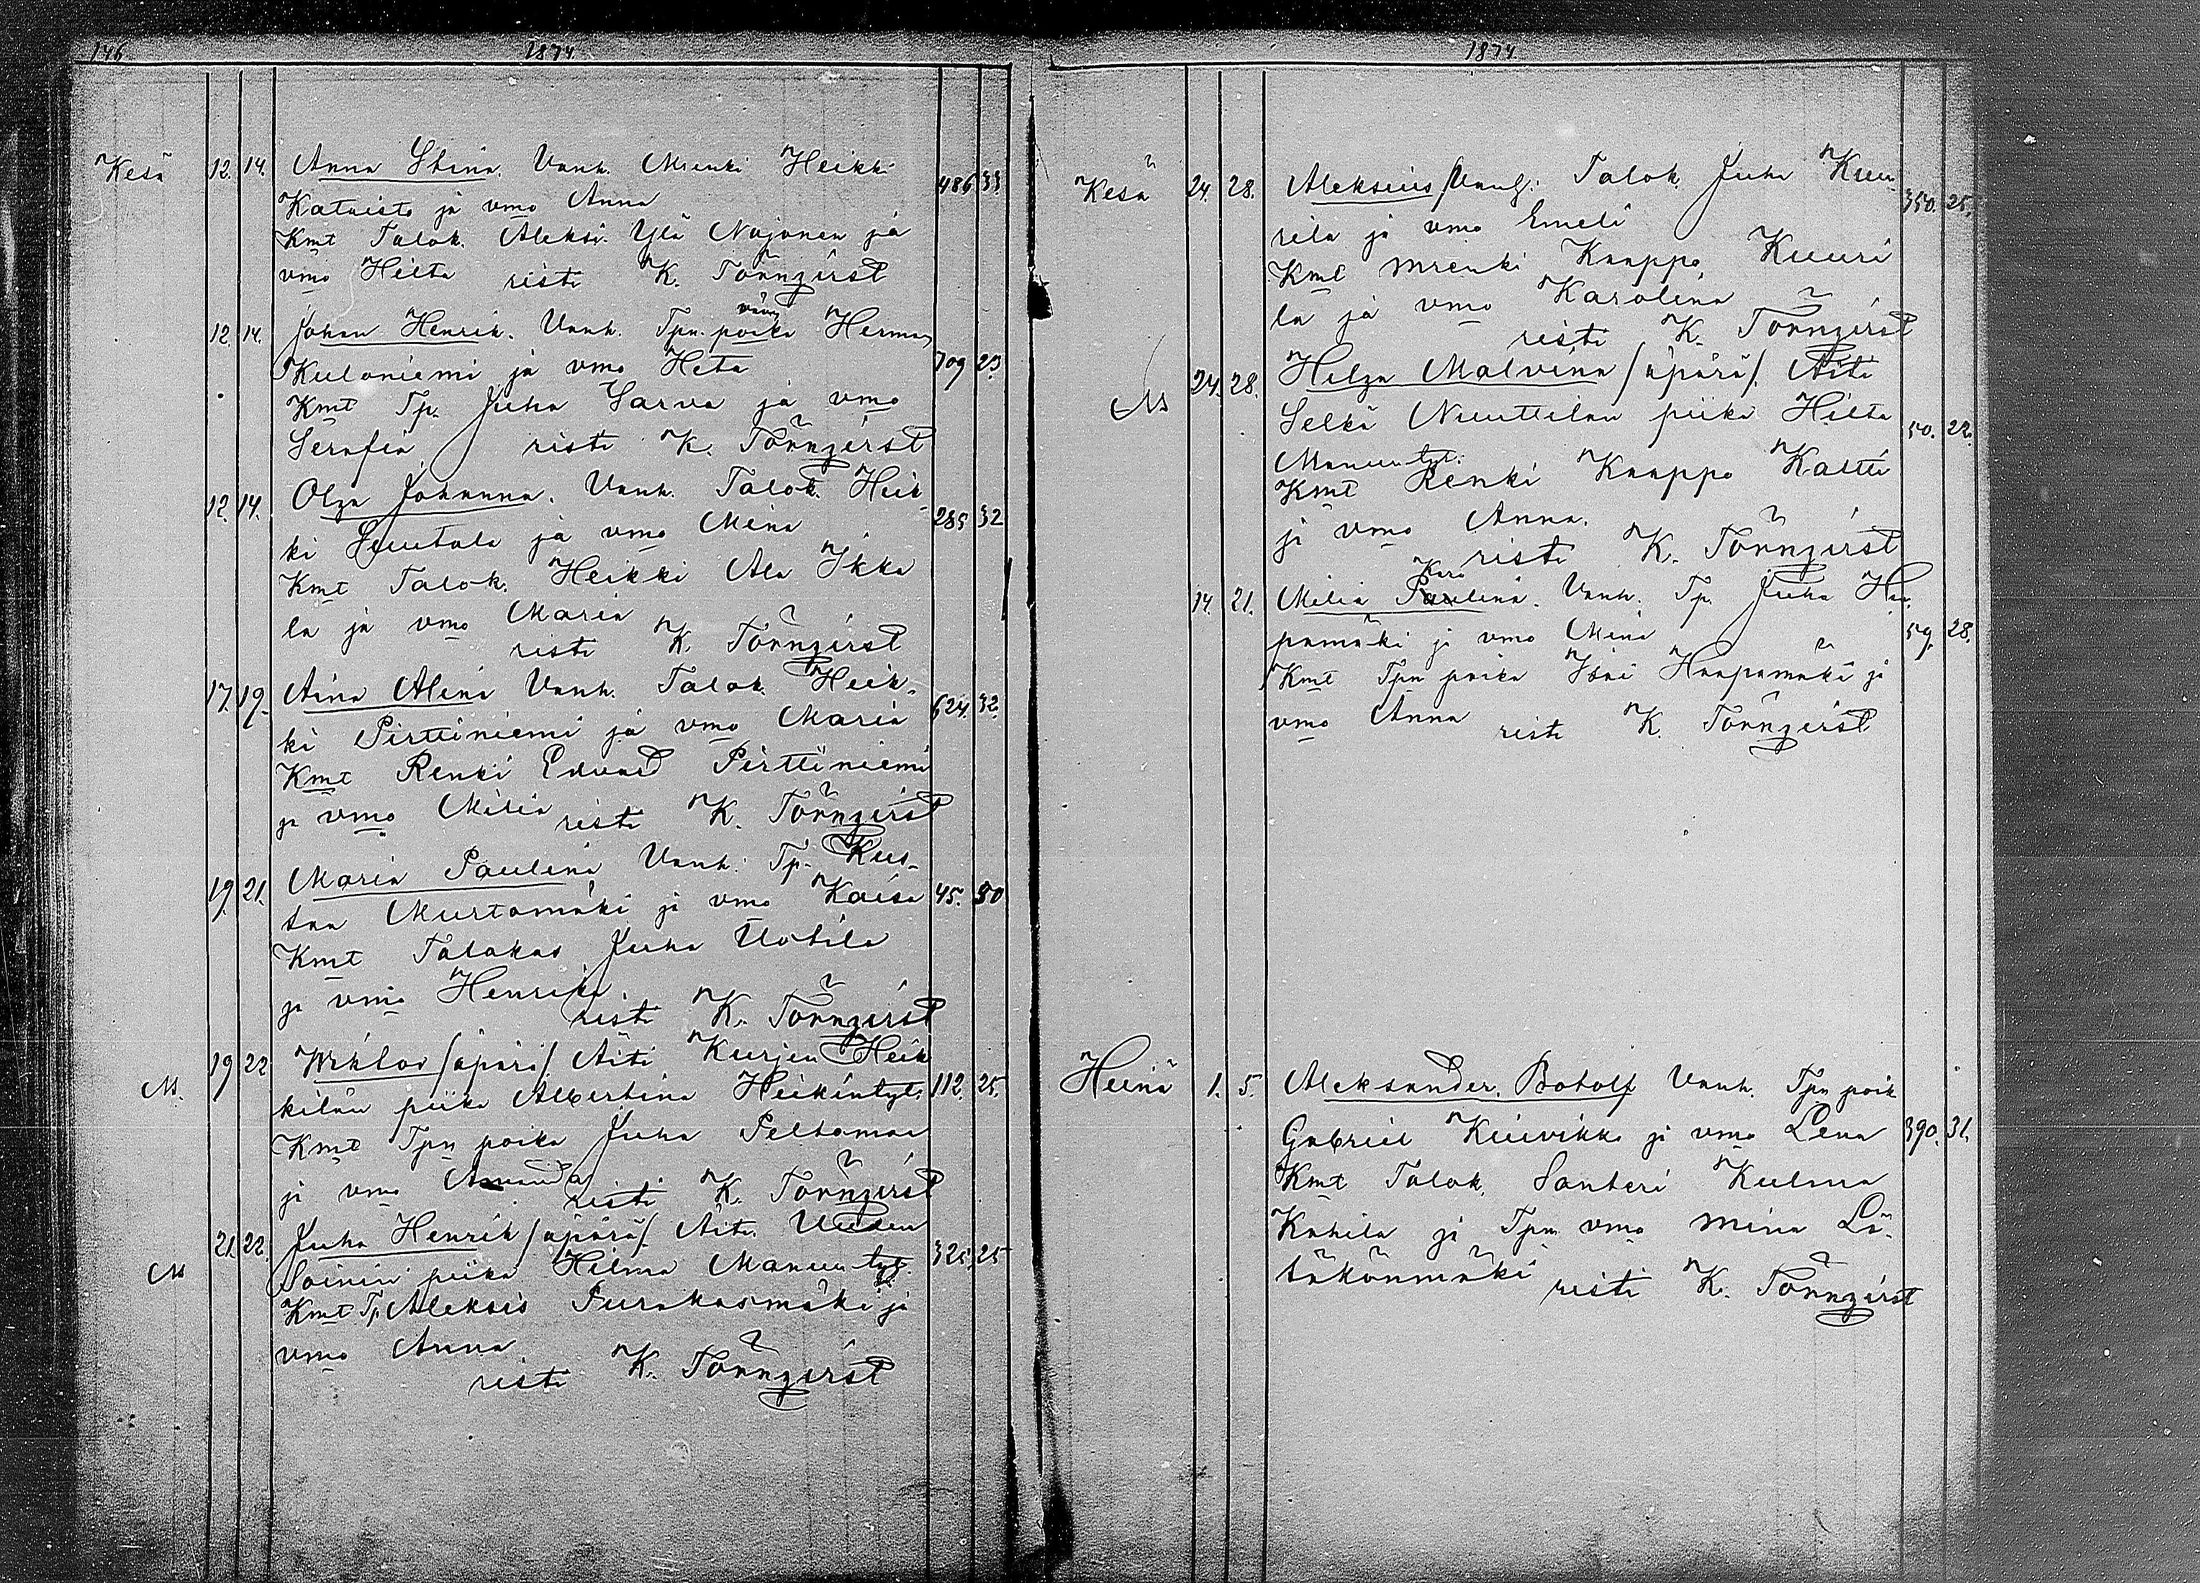 146 1874
Kesä 12. 14. Anna Stina. Vanh. Mrenki Heikki
Kataisto ja vmo Anna 486 33.
Kmt Talok. Aleksi Ylä Nojonen ja
vmo Hilta risti K. Törnqvist
12. 14. Johan Henrik. Vanh. Tpn. poika vävy Herman
Kuloniemi ja vmo Heta 709 23.
Kmt Tp. Juha Sarva ja vmo
Serafia risti K. Törnqvist
12. 14. Olga Johanna. Vanh. Talok. Heik-
ki Luutala ja vmo Mina 285 32
Kmt Talok. Heikki Ala Ikka
la ja vmo Maria
risti K. Törnqvist
17. 19. Aina Alina Vanh. Talok. Heik-
ki Pirttiniemi ja vmo Maria 624. 32.
Kmt Renki Edvard Pirttiniemi
ja vmo Milia risti K. Törnqvist
19. 21. Maria Paulina Vanh. Tp. Kus-
taa Murtomäki ja vmo Kaisa 45. 30
Kmt Talokas Juha Uotila
ja vmo Henrika
risti K. Törnqvist
M. 19 22 /äpärä/ Äiti Kurjen Heik
kilän piika Albertina Heikintyt. 112. 25.
Kmt Tpn poika Juha Peltomaa
ja vmo Amanda risti K. Törnqvist
M 21. 22. Juha Henrik /äpärä/. Äiti Uuden
Soinin piika Hilma Manuntyt. 325. 25
Kmt Tp. Aleksis Purakasmäki ja
vmo Anna
risti K. Törnqvist
1874.
Kesä 24. 28. Aleksius /Vanh. Talok. Juha Kuu
rila ja vmo Emeli 350. 25.
Kmt Mrenki Kaappo Kuuri
la ja vmo Karolina
risti K. Törnqvist
M 24. 28. Helga Malvina /äpärä/. Äiti
Selkä Nuuttilan piika Hilta 50. 22.
Manuntyt.
Kmt Renki Kaappo Katti
ja vmo Anna.
risti K. Törnqvist
14. 21. Milia Karolina. Vanh. Tp. Juha Haa
pamäki ja vmo Mina 59. 28.
Kmt Tpn poika Haapamäki ja
vmo Anna risti K. Törnqvist
Heinä 1. 5. Aleksander. Botolf Vanh. Tpn poik
Gabriel Kuivikko ja vmo Lena 390. 31.
Kmt Talok. Santeri Kulma
Kahila ja Tpn vmo Mina Lä-
täkönmäki risti K. Törnqvist